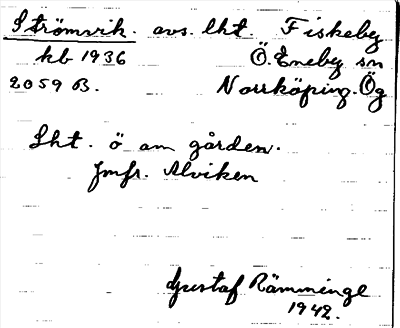 Strömvik. avs. lht. Fiskeby
kb 1936 Ö. Eneby sn
2059 B. Norrköping. Ög
Lht. ö om gården.
Jmfr. Alviken
Gustaf Rämminge
1942.